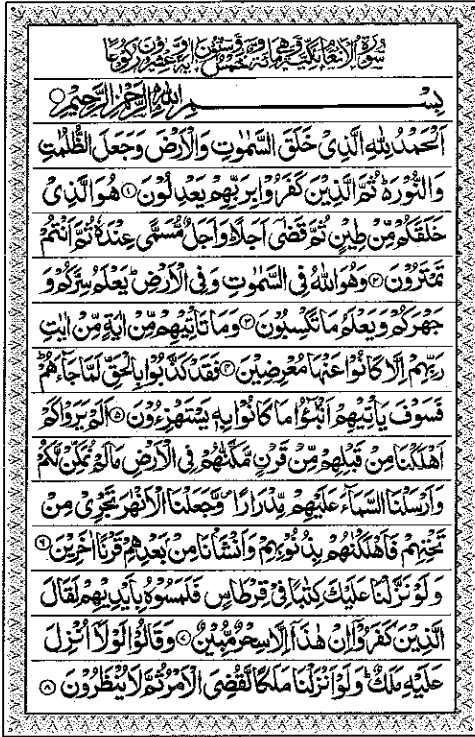 سُوْرَةُ الْاَنْعَامِ مَكِّيَّةٌ وَّهِىَ مِائَةٌ وَّخَمْسٌ وَّسِتُّوْنَ اٰيَةً وَّعِشْرُوْنَ رُكُوْعًا
بِسْمِ اللّٰهِ الرَّحْمٰنِ الرَّحِيْمِ
اَلْحَمْدُ لِلّٰهِ الَّذِىْ خَلَقَ السَّمٰوٰتِ وَالْاَرْضَ وَجَعَلَ الظُّلُمٰتِ
وَالنُّوْرَ ؕ ثُمَّ الَّذِيْنَ كَفَرُوْا بِرَبِّهِمْ يَعْدِلُوْنَ ۝۱ هُوَ الَّذِىْ
خَلَقَكُمْ مِّنْ طِيْنٍ ثُمَّ قَضٰٓى اَجَلًا ؕ وَاَجَلٌ مُّسَمًّى عِنْدَهٗ ثُمَّ اَنْتُمْ
تَمْتَرُوْنَ ۝۲ وَهُوَ اللّٰهُ فِى السَّمٰوٰتِ وَفِى الْاَرْضِ ؕ يَعْلَمُ سِرَّكُمْ وَ
جَهْرَكُمْ وَيَعْلَمُ مَا تَكْسِبُوْنَ ۝۳ وَمَا تَاْتِيْهِمْ مِّنْ اٰيَةٍ مِّنْ اٰيٰتِ
رَبِّهِمْ اِلَّا كَانُوْا عَنْهَا مُعْرِضِيْنَ ۝۴ فَقَدْ كَذَّبُوْا بِالْحَقِّ لَمَّا جَآءَهُمْ ؕ
فَسَوْفَ يَاْتِيْهِمْ اَنْۢبٰٓؤُا مَا كَانُوْا بِهٖ يَسْتَهْزِءُوْنَ ۝۵ اَلَمْ يَرَوْا كَمْ
اَهْلَكْنَا مِنْ قَبْلِهِمْ مِّنْ قَرْنٍ مَّكَّنّٰهُمْ فِى الْاَرْضِ مَا لَمْ نُمَكِّنْ لَّكُمْ
وَاَرْسَلْنَا السَّمَآءَ عَلَيْهِمْ مِّدْرَارًا وَّجَعَلْنَا الْاَنْهٰرَ تَجْرِىْ مِنْ
تَحْتِهِمْ فَاَهْلَكْنٰهُمْ بِذُنُوْبِهِمْ وَاَنْشَاْنَا مِنْۢ بَعْدِهِمْ قَرْنًا اٰخَرِيْنَ ۝۶
وَلَوْ نَزَّلْنَا عَلَيْكَ كِتٰبًا فِىْ قِرْطَاسٍ فَلَمَسُوْهُ بِاَيْدِيْهِمْ لَقَالَ
الَّذِيْنَ كَفَرُوْۤا اِنْ هٰذَاۤ اِلَّا سِحْرٌ مُّبِيْنٌ ۝۷ وَقَالُوْا لَوْلَاۤ اُنْزِلَ
عَلَيْهِ مَلَكٌ ؕ وَلَوْ اَنْزَلْنَا مَلَكًا لَّقُضِىَ الْاَمْرُ ثُمَّ لَا يُنْظَرُوْنَ ۝۸